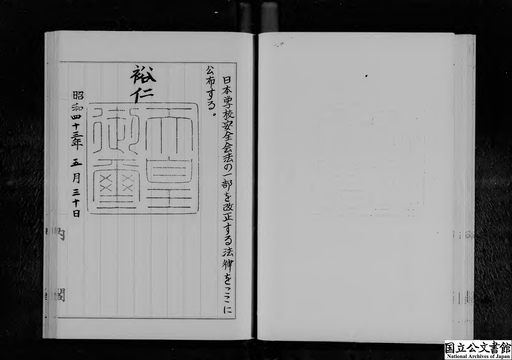 日本学校安全会法の一部を改正する法律をここに
公布する。
裕仁
天皇
御璽
昭和四十三年五月三十日
内閣
国立公文書館
National Archives of Japan